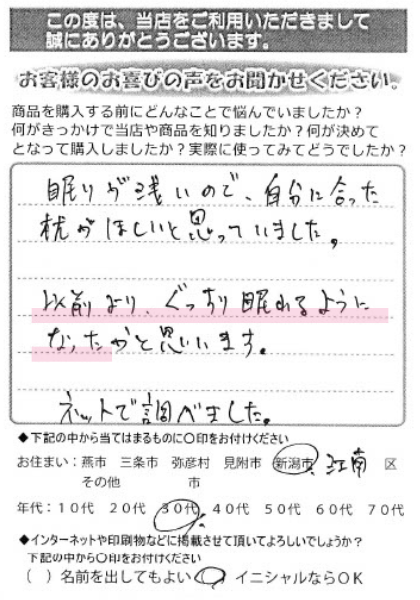 この度は、当店をご利用いただきまして
誠にありがとうございます。
お客様のお喜びの声をお聞かせください。
商品を購入する前にどんなことで悩んでいましたか？
何がきっかけで当店や商品を知りましたか？何が決めて
となって購入しましたか？実際に使ってみてどうでしたか？
眠りが浅いので、自分に合った
枕がほしいと思っていました。
以前より、ぐっすり眠れるように
なったかと思います。
ネットで調べました。
◆下記の中から当てはまるものに〇印をお付けください
お住まい：燕市 三条市 弥彦村 見附市 新潟市 江南 区
その他 市
年代：10代 20代 30代 40代 50代 60代 70代
◆インターネットや印刷物などに掲載させて頂いてよろしいでしょうか？
下記の中から〇印をお付けください
（ ）名前を出してもよい （〇）イニシャルならOK